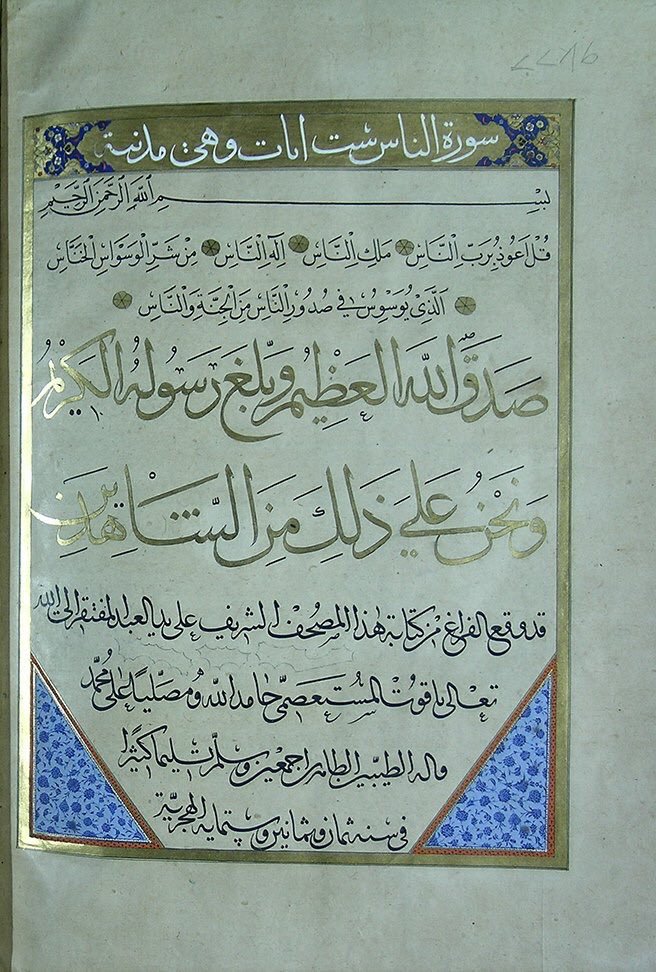 ٢٢٧٦
سورة الناس ست ايات وهي مدنية
بِسْمِ ٱللَّهِ ٱلرَّحْمَٰنِ ٱلرَّحِيمِ
قُلْ اَعُوذُ بِرَبِّ النَّاسِ مَلِكِ النَّاسِ اِلَهِ النَّاسِ مِنْ شَرِّ الْوَسْوَاسِ الْخَنَّاسِ
الَّذِي يُوَسْوِسُ فِي صُدُورِ النَّاسِ مِنَ الْجِنَّةِ وَالنَّاسِ
صَدَقَ اللَّهُ الْعَظِيمُ وَبَلَّغَ رَسُولُهُ الْكَرِيمُ
وَنَحْنُ عَلَى ذَلِكَ مِنَ الشَّاهِدِينَ
قد وقع الفراغ من كتابة هذا المصحف الشريف على يد العبد المفتقر الى الله
تعالى ياقوت المستعصمي حامدا لله ومصليا على محمد
واله الطيبين الطاهرين اجمعين وسلم تسليما كثيرا
في سنه ثمان وثمانين وستمايه الهجرية